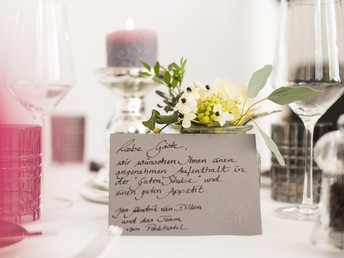 Liebe Gäste,
wir wünschen Ihnen einen
angenehmen Aufenthalt in
der "Guten Stube" und
einen guten Appetit
Jan Hendrik van Dillen
und das Team
vom Parkhotel